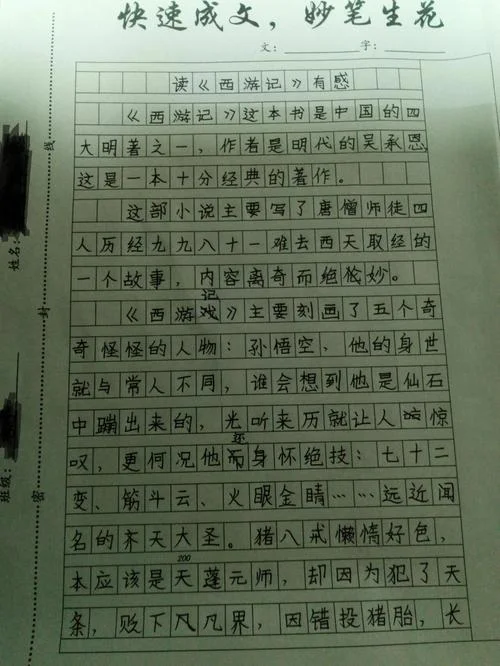 快速成文，妙笔生花
文：　　　字：
读《西游记》有感
《西游记》这本书是中国的四
大明著之一，作者是明代的吴承恩
这是一本十分经典的著作。
这部小说主要写了唐僧师徒四
人历经九九八十一难去西天取经的
一个故事，内容离奇而绝伦妙。
记
《西游戏》主要刻画了五个奇
奇怪怪的人物：孙悟空，他的身世
就与常人不同，谁会想到他是仙石
中蹦出来的，光听来历就让人惊
叹，更何况他还身怀绝技：七十二
变、筋斗云、火眼金睛……远近闻
名的齐天大圣。猪八戒懒惰好包，
200
本应该是天蓬元师，却因为犯了天
条，贬下凡凡界，因错投猪胎，长
姓名：
班级：
密
封
线